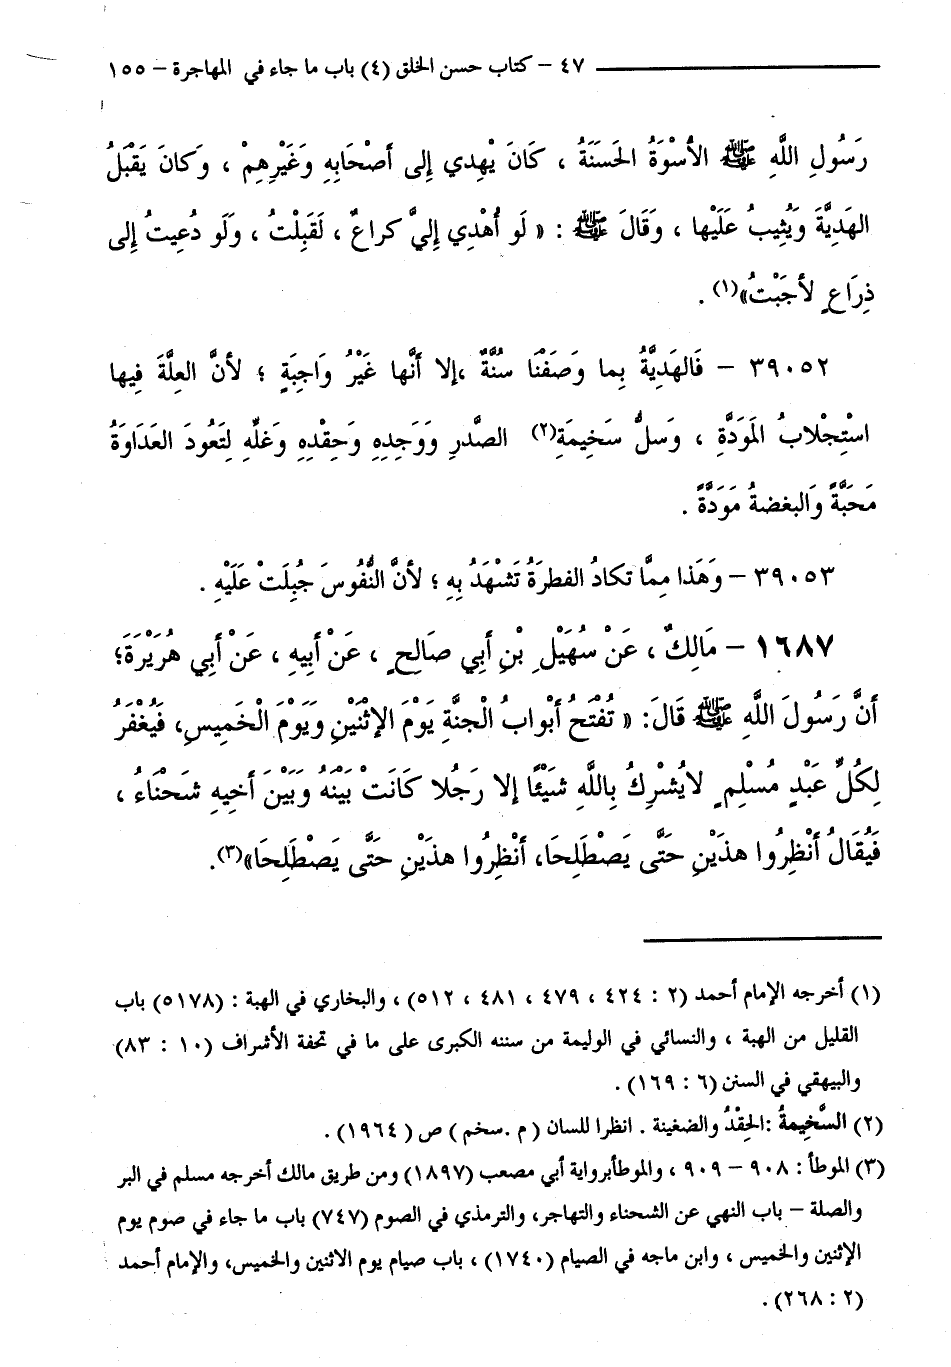 ٤٧ – كتاب حسن الخلق (٤) باب ما جاء في المهاجرة – ١٥٥
رَسُولِ اللَّهِ ﷺ الأُسْوَةُ الحَسَنَةُ ، كَانَ يُهْدِي إِلى أَصْحَابِهِ وَغَيْرِهِمْ ، وَكانَ يَقْبَلُ
الهَدِيَّةَ وَيُثِيبُ عَلَيْها ، وَقَالَ ﷺ : « لَو أُهْدِي إِليَّ كراعٌ ، لَقَبِلْتُ ، ولَو دُعِيتُ إِلى
ذِرَاعٍ لأجَبْتُ»(١) .
٣٩٠٥٢ – فَالهَدِيَّةُ بِما وَصَفْنَا سُنَّةٌ ،إلا أَنَّها غَيْرُ وَاجِبَةٍ ؛ لأنَّ العِلَّةَ فِيها
اسْتِجْلابُ المَوَدَّةِ ، وَسلُّ سَخِيمَةِ(٢) الصَّدرِ وَوَجدِهِ وَحِقدِهِ وَغلِّهِ لِتَعُودَ العَدَاوَةُ
مَحَبَّةً وَالبغضةُ مَوَدَّةً .
٣٩٠٥٣ – وَهَذا مِمَّا تكادُ الفطرَةُ تَشْهَدُ بِهِ ؛ لأنَّ النُّفُوسَ جُبِلَتْ عَلَيْهِ .
١٦٨٧ – مَالِكٌ ، عَنْ سُهَيْلِ بْنِ أَبِي صَالحٍ ، عَنْ أَبِيهِ ، عَنْ أَبِي هُرَيْرَةَ؛
أَنَّ رَسُولَ اللَّهِ ﷺ قَالَ: « تُفْتَحُ أَبْوابُ الْجنَّةِ يَوْمَ الإثْنَيْنِ وَيَوْمَ الْخَمِيسِ، فَيُغْفَرُ
لِكُلِّ عَبْدٍ مُسْلِمٍ لايُشْرِكُ بِاللَّهِ شَيْئًا إلا رَجُلا كَانَتْ بَيْنَهُ وَبَيْنَ أخِيهِ شَحْنَاءُ ،
فَيُقَالُ أَنْظِرُوا هذَيْنِ حَتَّى يَصْطَلِحَا، أَنْظِرُوا هذَيْنِ حَتَّى يَصْطَلِحَا»(٣).
(١) أخرجه الإمام أحمد (٢ : ٤٢٤ ، ٤٧٩ ، ٤٨١ ، ٥١٢) ، والبخاري في الهبة : (٥١٧٨) باب
القليل من الهبة ، والنسائي في الوليمة من سننه الكبرى على ما في تحفة الأشراف (١٠ : ٨٣)
والبيهقي في السنن (٦ : ١٦٩) .
(٢) السَّخِيمةُ :الحِقْدُ والضغينة . انظرا للسان ( م .سخم ) ص ( ١٩٦٤) .
(٣) الموطأ : ٩٠٨ – ٩٠٩ ، والموطأبرواية أبي مصعب (١٨٩٧) ومن طريق مالك أخرجه مسلم في البر
والصلة – باب النهي عن الشحناء والتهاجر، والترمذي في الصوم (٧٤٧) باب ما جاء في صوم يوم
الإثنين والخميس ، وابن ماجه في الصيام (١٧٤٠) ، باب صيام يوم الاثنين والخميس، والإمام أحمد
(٢ : ٢٦٨) .